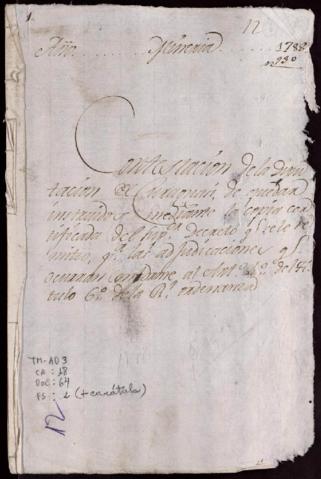 12
Año Minería 1788
nº 930
Contestación de la Dipu
tación de Huaypuri, de quedar
instando mediante la copia cer
tificada del Supºr decreto qº se le re
mitió, qº las adjudicaciones qº
ocurran conforme al Artº 2º del tí
tulo 6º de la Rl ordenanza
TM-AD 3
CA : 18
DOC : 64
FS : 2 (+ carátula)
12